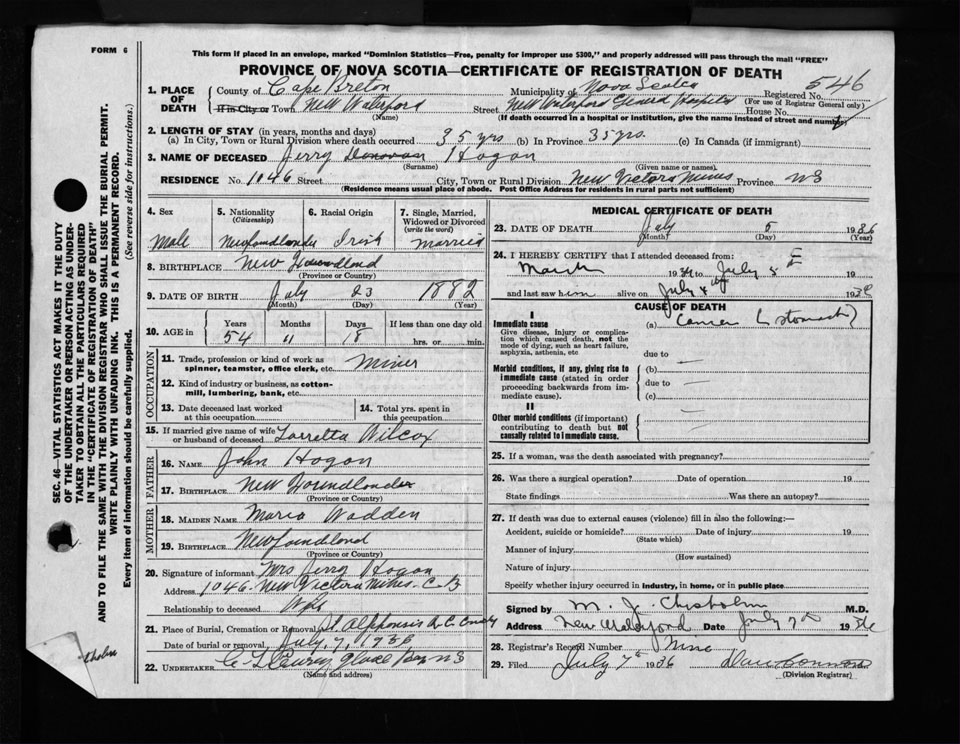 FORM 6
This form if placed in an envelope, marked "Dominion Statistics—Free, penalty for improper use $300," and properly addressed will pass through the mail "FREE"
PROVINCE OF NOVA SCOTIA—CERTIFICATE OF REGISTRATION OF DEATH
1. PLACE OF DEATH
County of Cape Breton Municipality of Nova Scotia Registered No. 546
(For use of Registrar General only)
If in City or Town New Waterford Street New Waterford General Hospital House No.
(Name) (If death occurred in a hospital or institution, give the name instead of street and number)
2. LENGTH OF STAY (in years, months and days)
(a) In City, Town or Rural Division where death occurred 35 yrs (b) In Province 35 yrs. (c) In Canada (if immigrant)
3. NAME OF DECEASED Jerry Donovan Hogan
(Surname) (Given name or names)
RESIDENCE No. 1046 Street City, Town or Rural Division New Victoria Mines Province NS
(Residence means usual place of abode. Post Office Address for residents in rural parts not sufficient)
4. Sex
Male
5. Nationality
(Citizenship)
Newfoundlander
6. Racial Origin
Irish
7. Single, Married, Widowed or Divorced
(write the word)
Married
8. BIRTHPLACE New Foundlond
(Province or Country)
9. DATE OF BIRTH July 23 1882
(Month) (Day) (Year)
10. AGE in
Years Months Days If less than one day old
54 11 18 hrs. or min.
OCCUPATION
11. Trade, profession or kind of work as spinner, teamster, office clerk, etc. Miner
12. Kind of industry or business, as cotton-mill, lumbering, bank, etc.
13. Date deceased last worked at this occupation
14. Total yrs. spent in this occupation
15. If married give name of wife or husband of deceased Lorretta Wilcox
FATHER
16. NAME John Hogan
17. BIRTHPLACE New Foundlander
(Province or Country)
MOTHER
18. MAIDEN NAME Maria Wadden
19. BIRTHPLACE Newfoundlond
(Province or Country)
20. Signature of informant Mrs Jerry Hogan
Address 1046 New Victoria Mines. C.B
Relationship to deceased Wife
21. Place of Burial, Cremation or Removal St Alphonsis R.C.
Date of burial or removal July, 7, 1936
22. UNDERTAKER Glace Bay NS
(Name and address)
MEDICAL CERTIFICATE OF DEATH
23. DATE OF DEATH July 5 1936
(Month) (Day) (Year)
24. I HEREBY CERTIFY that I attended deceased from:
March 19 to July 19
and last saw him alive on July 19
CAUSE OF DEATH
I
Immediate cause (a) Cancer (stomach)
Give disease, injury or complication which caused death, not the mode of dying, such as heart failure, asphyxia, asthenia, etc
due to
Morbid conditions, if any, giving rise to immediate cause (stated in order proceeding backwards from immediate cause).
(b)
due to
(c)
II
Other morbid conditions (if important) contributing to death but not causally related to immediate cause.
25. If a woman, was the death associated with pregnancy?
26. Was there a surgical operation? Date of operation 19
State findings Was there an autopsy?
27. If death was due to external causes (violence) fill in also the following:—
Accident, suicide or homicide? Date of injury 19
(State which)
Manner of injury
(How sustained)
Nature of injury
Specify whether injury occurred in industry, in home, or in public place
Signed by M. J. Chisholm M.D.
Address New Waterford Date July 7th 1936
28. Registrar's Record Number Nine
29. Filed July 7th 1936
(Division Registrar)
SEC. 46—VITAL STATISTICS ACT MAKES IT THE DUTY
OF THE UNDERTAKER OR PERSON ACTING AS UNDER-
TAKER TO OBTAIN ALL THE PARTICULARS REQUIRED
IN THE "CERTIFICATE OF REGISTRATION OF DEATH"
AND TO FILE THE SAME WITH THE DIVISION REGISTRAR WHO SHALL ISSUE THE BURIAL PERMIT.
WRITE PLAINLY WITH UNFADING INK. THIS IS A PERMANENT RECORD.
Every item of information should be carefully supplied. (See reverse side for instructions.)